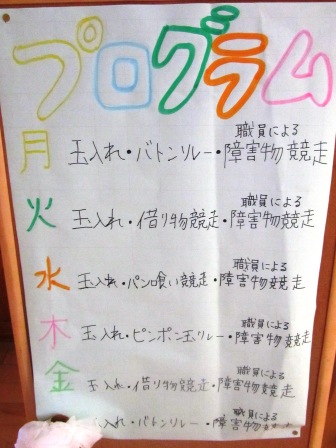 プログラム
職員による
月 玉入れ・バトンリレー・障害物競走
職員による
火 玉入れ・借り物競走・障害物競走
職員による
水 玉入れ・パン喰い競走・障害物競走
職員による
木 玉入れ・ピンポン玉リレー・障害物競走
職員による
金 玉入れ・借り物競走・障害物競走
職員による
入れ・バトンリレー・障害物競走